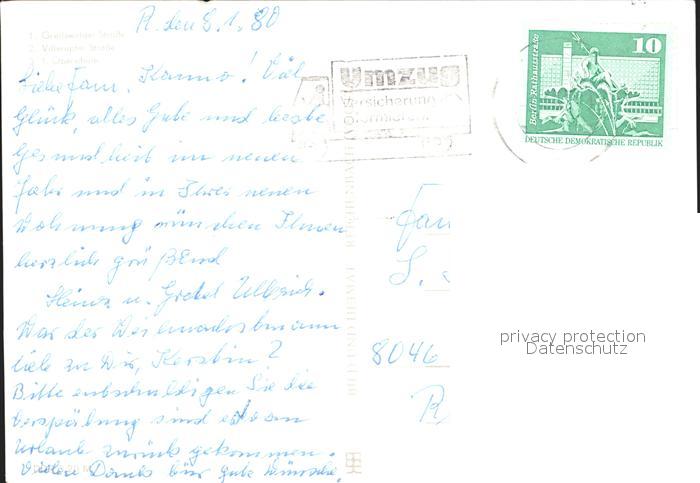 R. den 8.1.80
1. Greifswalder Straße
2. Villeruper Straße
Liebe Fam. Kanno! Viel
Glück, alles Gute und beste
Gesundheit im neuen
Jahr und in Ihrer neuen
Wohnung wünschen Ihnen
herzlich grüßend
Heinz u. Gretel Ulbrich.
War der Weihnachtsmann
lieb zu Dir, Kerstin?
Bitte entschuldigen Sie die
Verspätung sind erst am
Urlaub zurück gekommen.
Vielen Dank für gute Wünsche.
Umzug
Versicherung
informieren
10
Berlin · Rathausstraße
DEUTSCHE DEMOKRATISCHE REPUBLIK
Fam
8046
R
privacy protection
Datenschutz